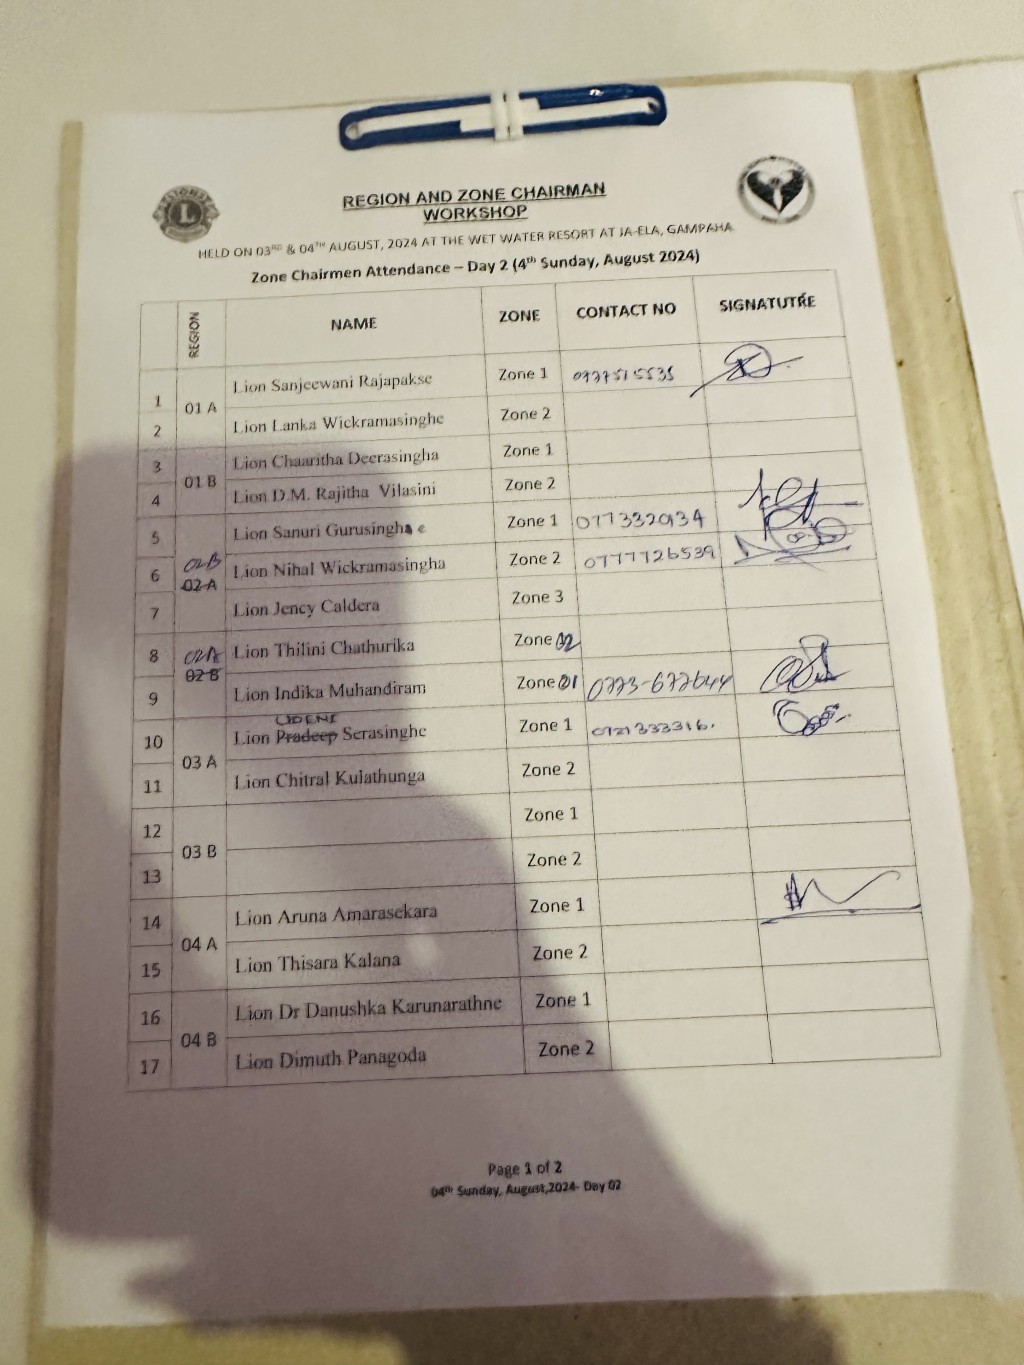 LIONS
L
REGION AND ZONE CHAIRMAN
WORKSHOP
HELD ON 03RD & 04TH AUGUST, 2024 AT THE WET WATER RESORT AT JA-ELA, GAMPAHA
Zone Chairmen Attendance – Day 2 (4th Sunday, August 2024)
REGION NAME ZONE CONTACT NO SIGNATUTRE
1 01 A Lion Sanjeewani Rajapakse Zone 1
2 Lion Lanka Wickramasinghe Zone 2
3 01 B Lion Chaaritha Deerasingha Zone 1
4 Lion D.M. Rajitha Vilasini Zone 2
5 Lion Sanuri Gurusingha e Zone 1 0773320134
6 02B 02-A Lion Nihal Wickramasingha Zone 2 0777726539
7 Lion Jency Caldera Zone 3
8 02A 02 B Lion Thilini Chathurika Zone 02
9 Lion Indika Muhandiram Zone 01 0773-677644
UDENI
10 03 A Lion Pradeep Serasinghe Zone 1 0721333316.
11 Lion Chitral Kulathunga Zone 2
12 03 B Zone 1
13 Zone 2
14 04 A Lion Aruna Amarasekara Zone 1
15 Lion Thisara Kalana Zone 2
16 04 B Lion Dr Danushka Karunarathne Zone 1
17 Lion Dimuth Panagoda Zone 2
Page 1 of 2
04th Sunday, August,2024- Day 02